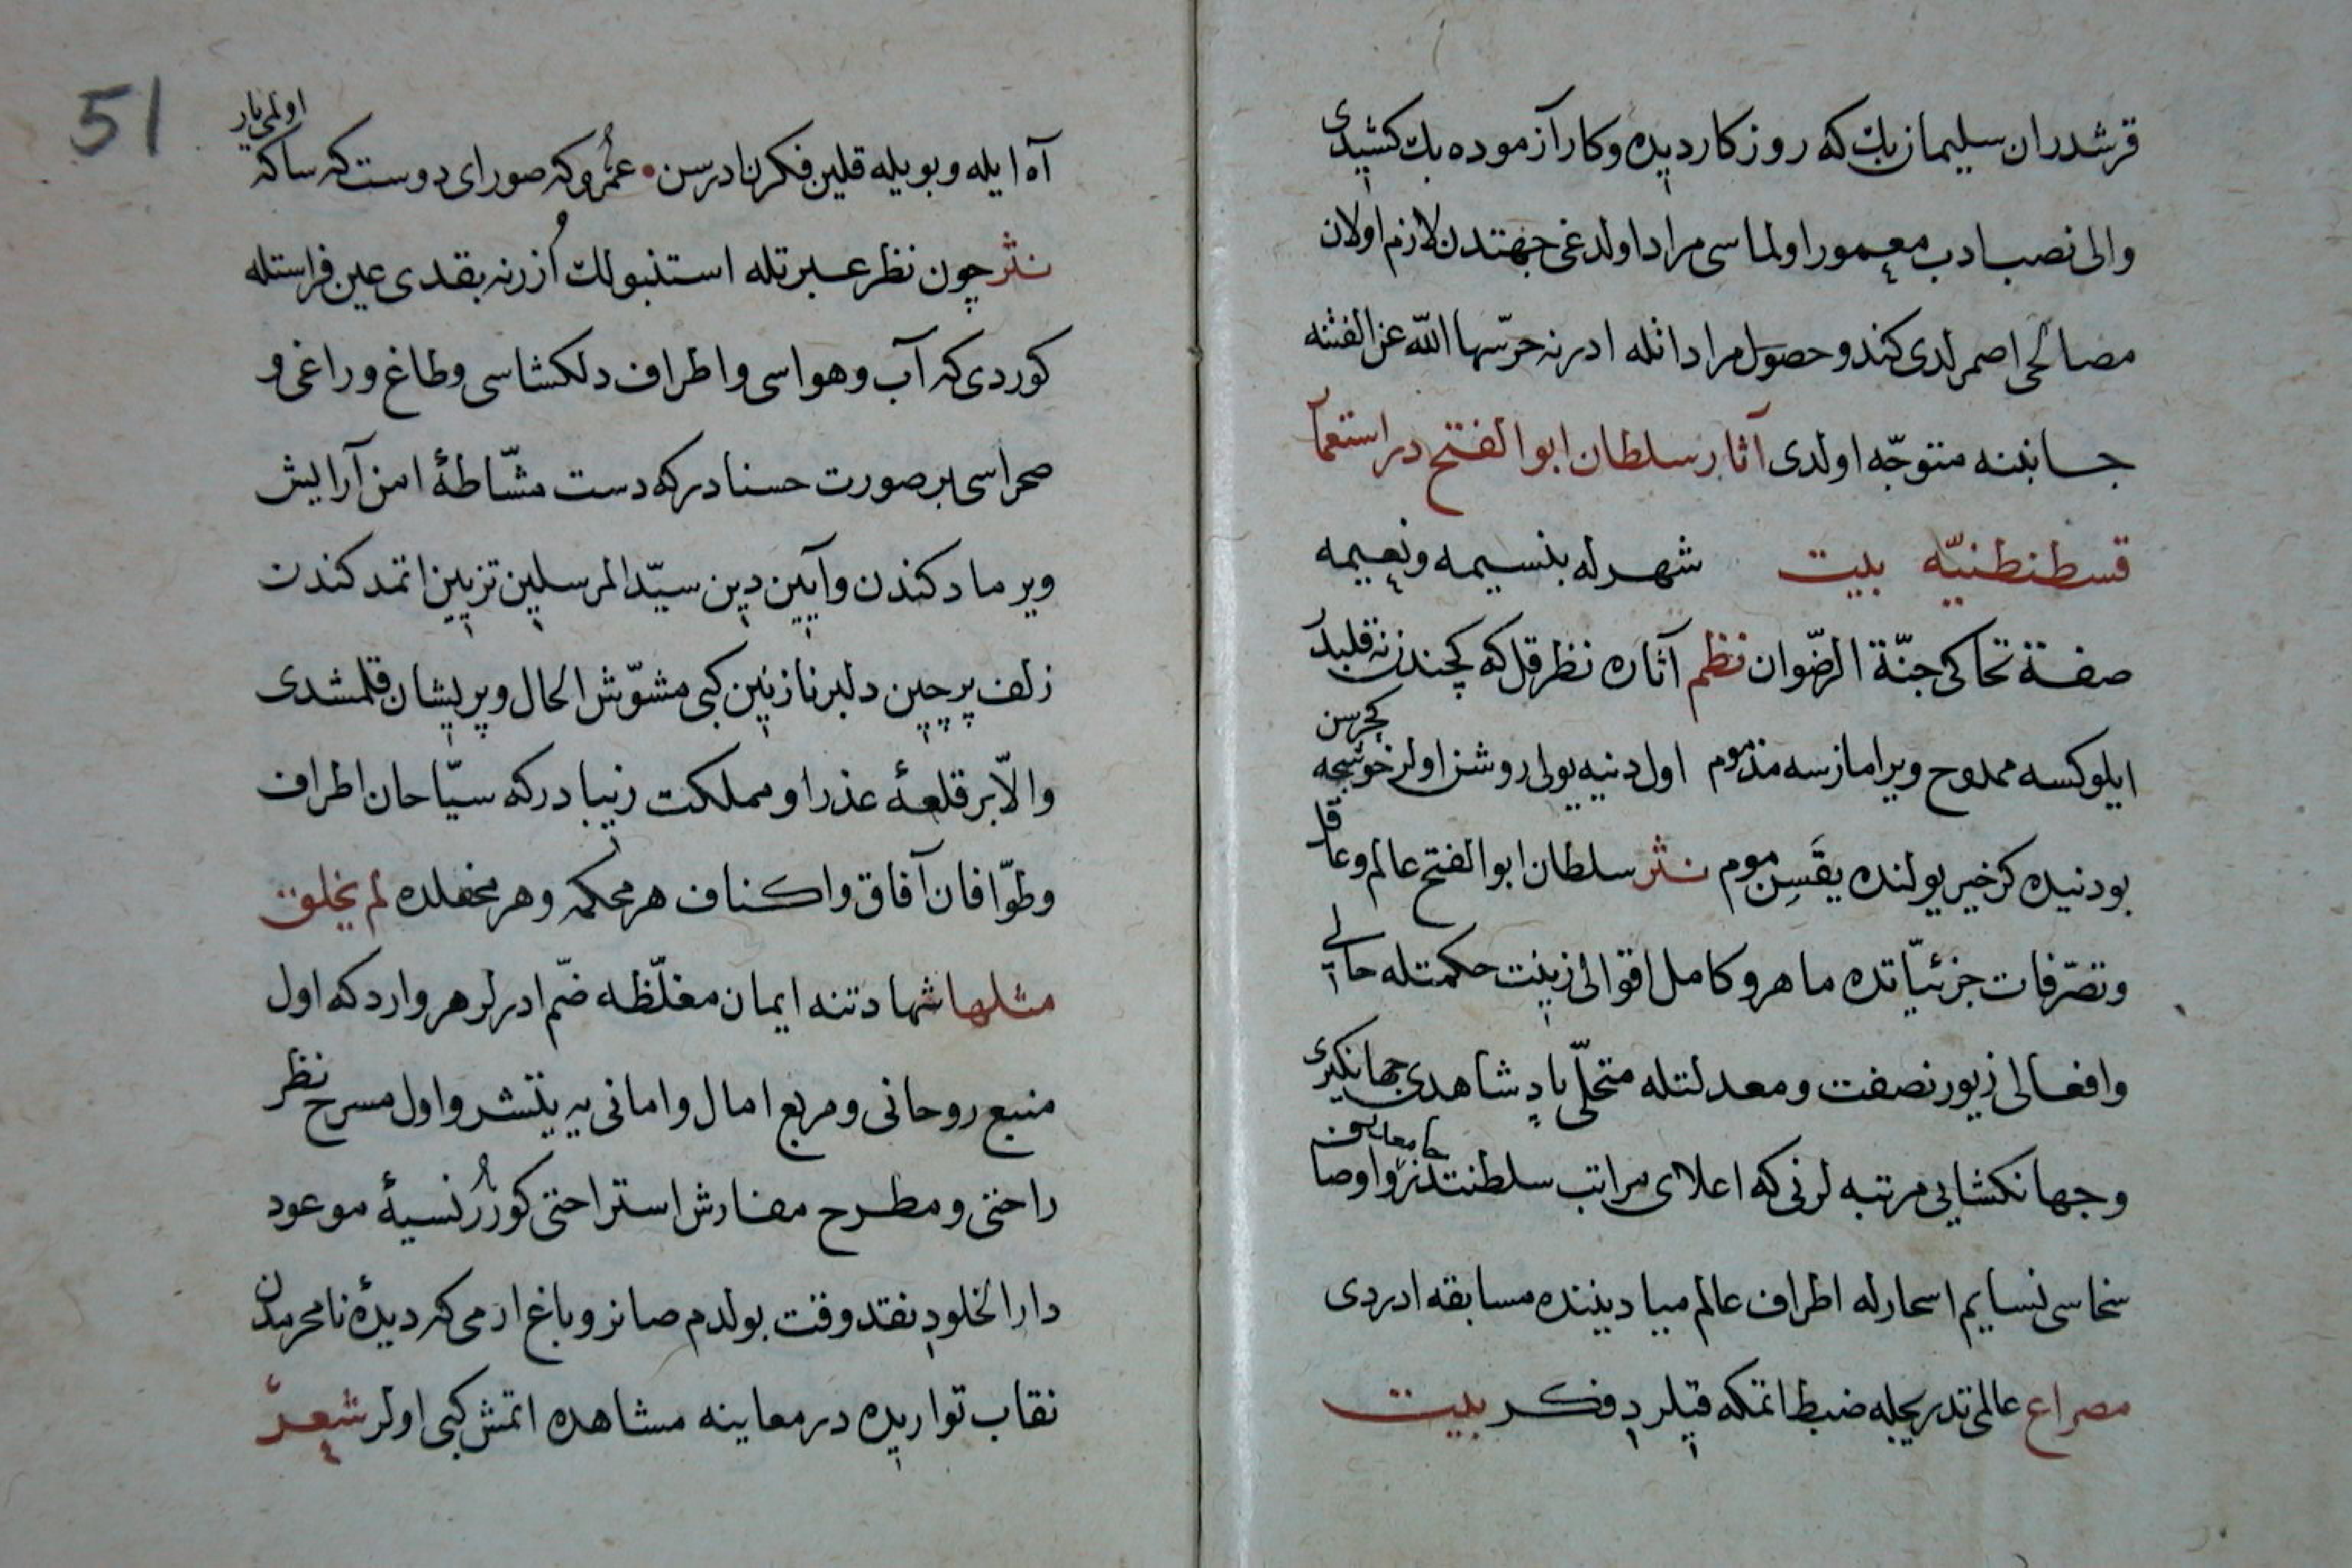 قرشدران سلیمان بك كه روزكار دیده وكار آزموده بك كشیدی
والی نصب ادب معمور اولماسی مراد اولدغی جهتدن لازم اولان
مصالحی اصمرلدی كندو حصول مراد اتله ادرنه حرّسها اللّه عن الفتنه
جانبنه متوجّه اولدی آثار سلطان ابو الفتح در استعمار
قسطنطنیّه بیت شهر له بنسیمه ونعیمه
صفة تحاكی جنّة الرضوان نظم آثاره نظر قل كه كچندن نه قلبدر
ایلو كسه ممدوح ویرامازسه مذموم اول دنیه یولی روشن اولر خوشجه كچرسن
بو دنیده كر خیر یولنده یقسن موم نثر سلطان ابو الفتح عالم وعاقل
وتصرّفات جزئیّاتده ماهر وكامل اقوالی زینت حكمتله حالی
وافعالی زیور نصفت ومعدلتله متحلّی پادشاهدی جهانكیری
وجهانكشایی مرتبه لرنی كه اعلای مراتب سلطنتدنر واوصاف
سخاسی نسایم اسحارله اطراف عالم میادیننده مسابقه ادردی
مصراع عالمی تدریجله ضبط اتمكه قیلردی فكر بیت
51
آه ایله وبویله قلین فكر نادرسن • عمرو كه صور ای دوست كه ساكه اولمی یار
نثر چون نظر عبرتله استنبولك اُزرنه بقدی عین فراستله
كوردی كه آب وهواسی واطراف دلكشاسی وطاغ وراغی و
صحراسی بر صورت حسنادر كه دست مشّاطهٔ امن آرایش
ویرمادكندن وآیین دین سیّد المرسلین تزیین اتمدكندن
زلف پرچین دلبر نازنین كبی مشوّش الحال وپریشان قلمشدی
والاّ بر قلعهٔ عذرا ومملكت زیبادر كه سیّاحان اطراف
وطوّافان آفاق واكناف هر محكمه وهر محفلده لم یخلق
مثلها شهادتنه ایمان مغلّظه ضمّ ادرلر هر وارد كه اول
منبع روحانی ومربع امال وامانی یه یتشر واول مسرح نظر
راحتی ومطرح مفارش استراحتی كورر نسیهٔ موعود
دار الخلودی نقد وقت بولدم صانر وباغ ارمی كه دیدهٔ نامحرمدن
نقاب تواریده در معاینه مشاهده اتمش كبی اولر شعر